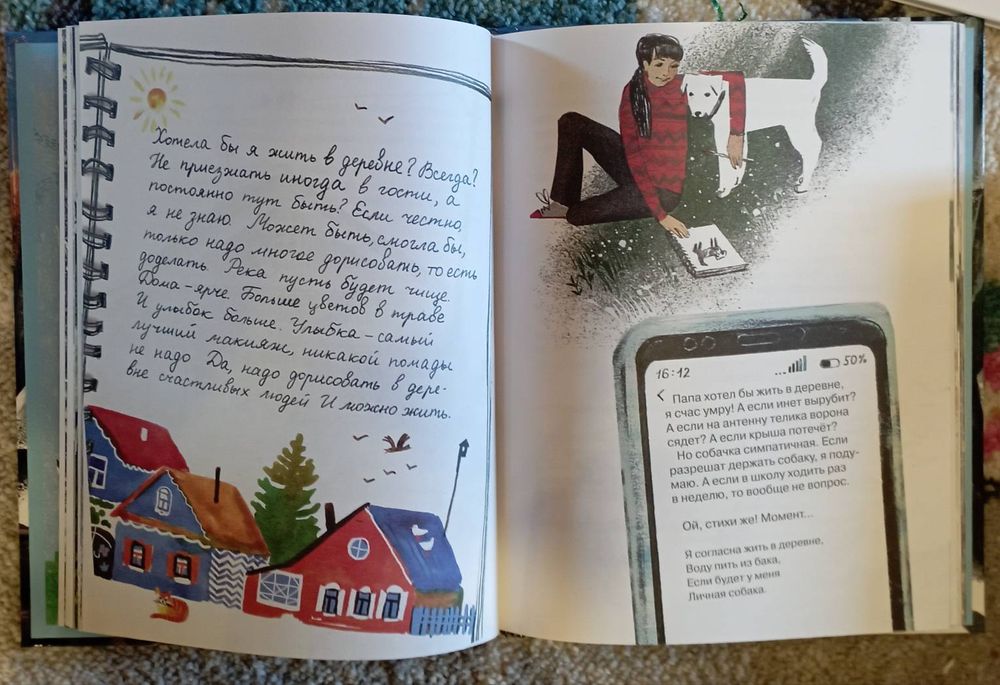 Хотела бы я жить в деревне? Всегда?
Не приезжать иногда в гости, а
постоянно тут быть? Если честно,
я не знаю. Может быть, смогла бы,
только надо многое дорисовать, то есть
доделать. Река пусть будет чище.
Дома – ярче. Больше цветов в траве
И улыбок больше. Улыбка – самый
лучший макияж, никакой помады
не надо. Да, надо дорисовать в дере-
вне счастливых людей И можно жить.
16:12
50%
Папа хотел бы жить в деревне,
я счас умру! А если инет вырубит?
А если на антенну телика ворона
сядет? А если крыша потечёт?
Но собачка симпатичная. Если
разрешат держать собаку, я поду-
маю. А если в школу ходить раз
в неделю, то вообще не вопрос.
Ой, стихи же! Момент...
Я согласна жить в деревне,
Воду пить из бака,
Если будет у меня
Личная собака.